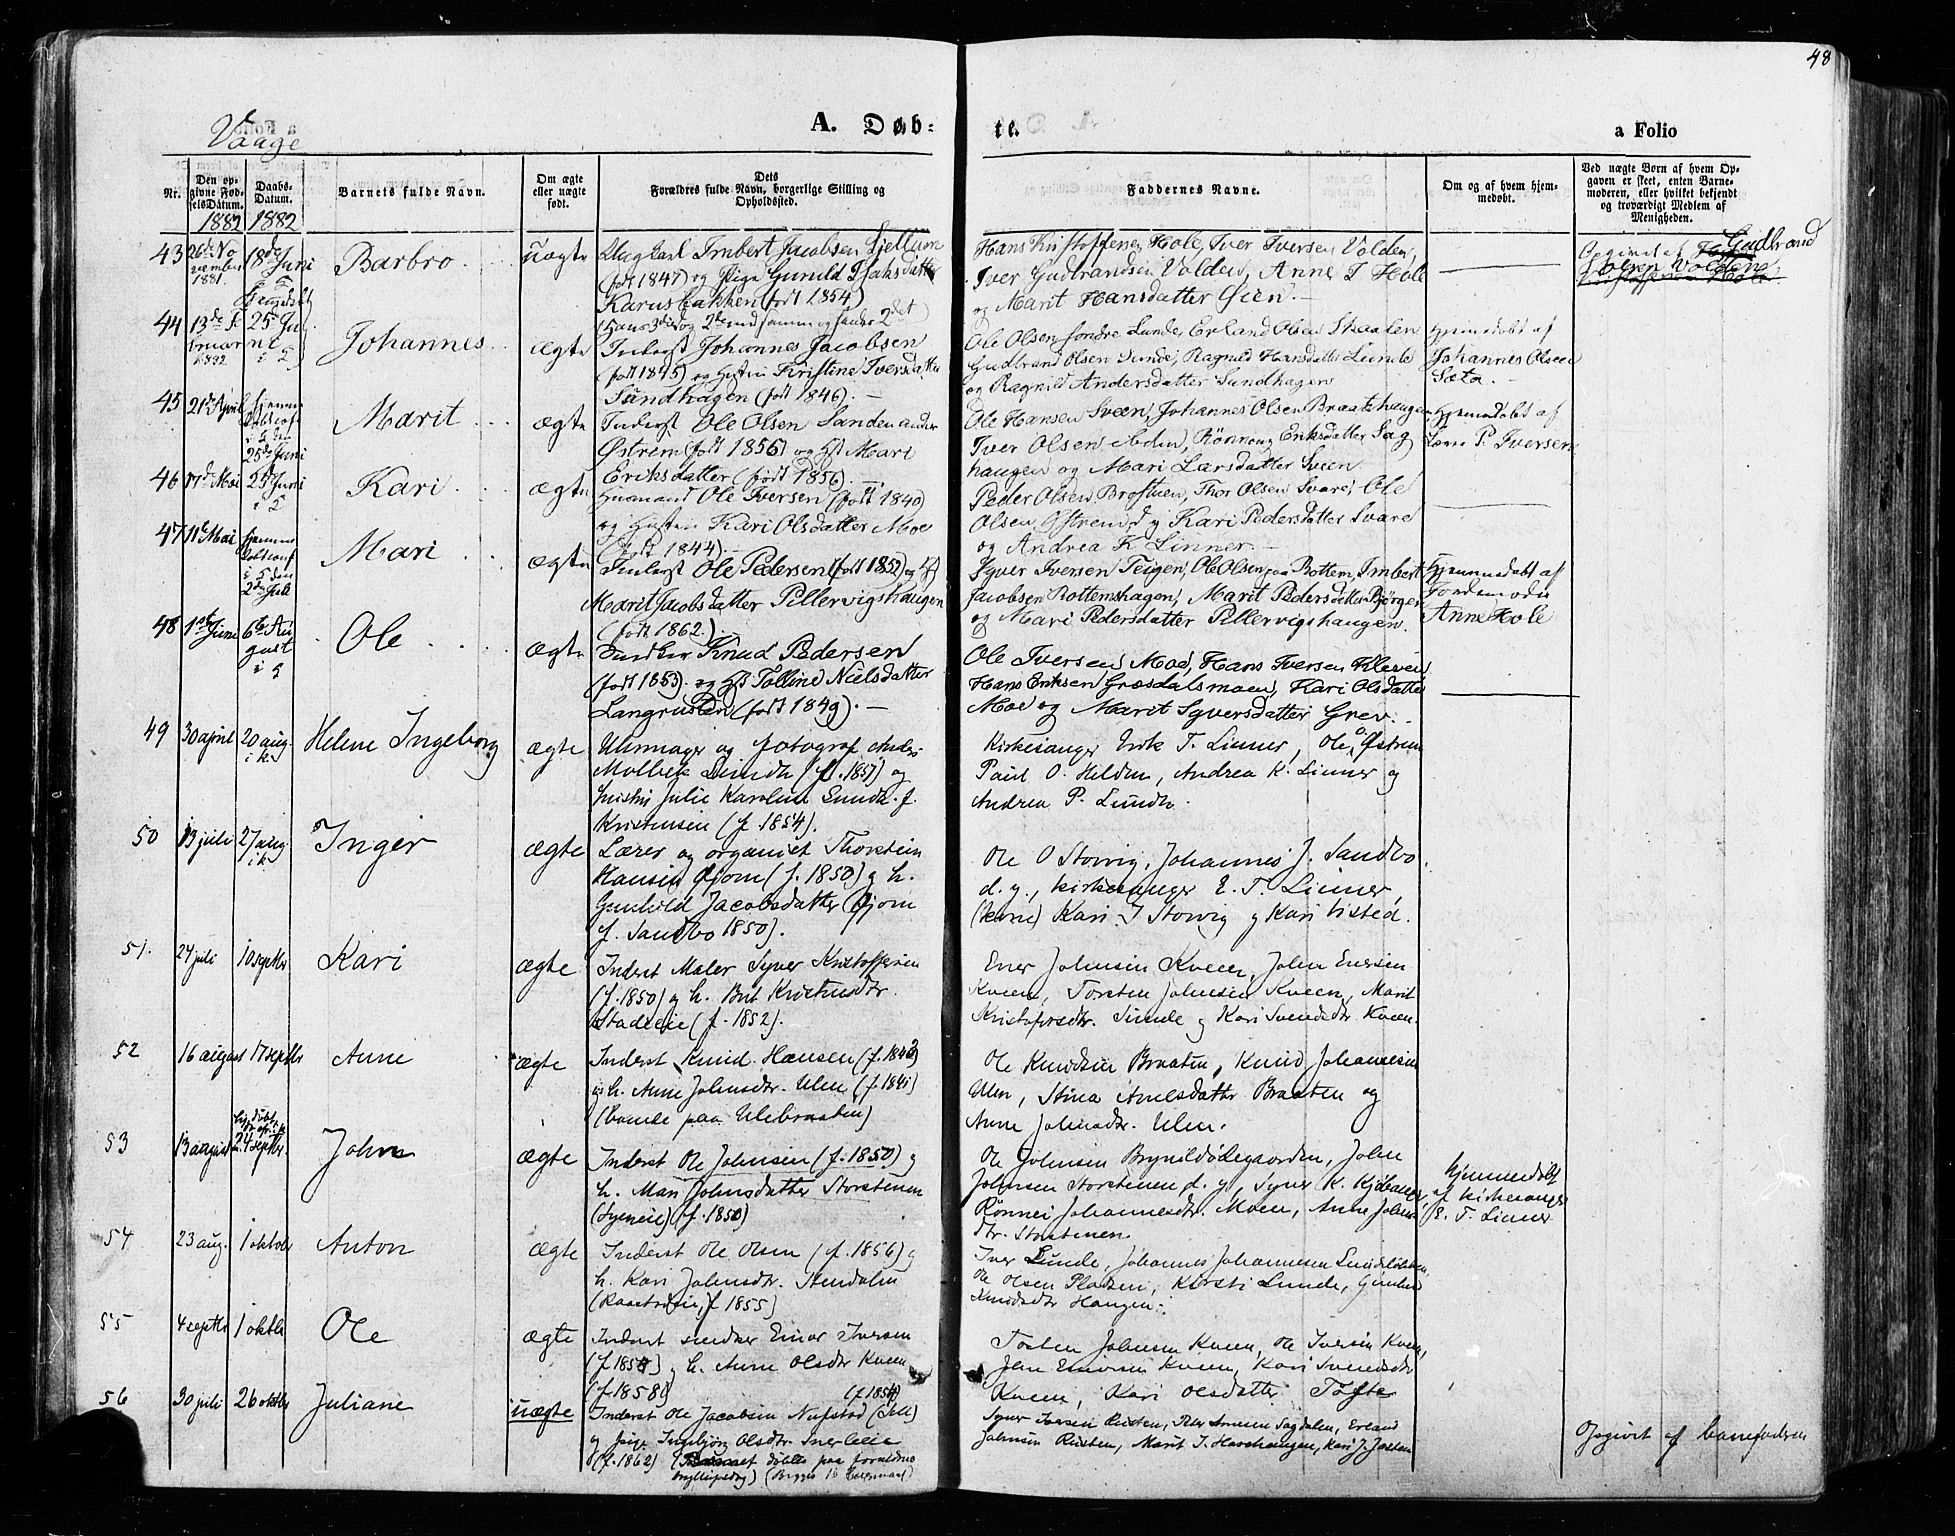 48
Vaage
A. Døb-
te.
a Folio
Nr.
Den op-
givne Fød-
selsDatum.
Daabs-
Datum.
Barnets fulde Navn.
Om ægte
eller uægte
født.
Dets
Forældres fulde Navn, borgerlige Stilling og
Opholdssted.
Faddernes Navne.
Om og af hvem hjem-
medøbt.
Ved uægte Børn af hvem Op-
gaven er skeet, enten Barne-
moderen, eller hvilket bekjendt
og troværdigt Medlem af
Menigheden.
1882 1882
43
26de No
vember
1881.
18de Juni
Barbro
uægte
Ungkarl Imbert Jacobsen
(født 1847) og Pige Gunild
(født 1854)
Hans Kristoffersen Hole, Iver Iversen Volden,
Iver Gudbrandsen Volden, Anne I Hole
og Marit Hansdatter Øien.
Opgivet af Gudbrand
44
13de
1882
25de Ju
ni
Johannes
ægte
Inderst Johannes Jacobsen
(født 1845) og Hustru Kristine Iversdatter
Sundhagen (født 1846).
Ole Olsen søndre Lunde, Erland Olsen
Gudbrand Olsen Lunde, Ragnild Hansdatter Lunde
og Ragnild Andersdatter Sundhagen
Hjemmedøbt af
Johannes Olsen
Sæta.
45
21de April
25de Juni
Marit
ægte
Inderst Ole Olsen Sanden under
Østrem (født 1856) og H Mari
Eriksdatter (født 1856).
Ole Hansen Sveen, Johannes Olsen Braatehaugen
Iver Olsen, Rønnaug Eriksdatter Sag
haugen og Mari Larsdatter Sveen
Hjemmedøbt af
P. Iversen
46
17de Mai
25de Juni
Kari
ægte
Husmand Ole Iversen (født 1840)
og Hustru Kari Olsdatter Moe
(født 1844).
Peder Olsen Brostuen, Thor Olsen Svare, Ole
Olsen Østrem d y Kari Pedersdatter Svare
og Andrea K Linner.
47
11te Mai
2den Juli
Mari
ægte
Inderst Ole Pedersen (født 1852) og H
Marit Jacobsdatter Pillervigshaugen
(født 1862).
Syver Iversen Teigen, Ole Olsen paa Bottem, Imbert
Jacobsen Bottemshagen, Marit Pedersdatter Bjørge
og Mari Pedersdatter Pillervigshaugen.
Hjemmedøbt af
Jordemoder
Anne Hole
48
1ste Juni
6te Au
gust
Ole
ægte
Knud Pedersen
(født 1853) og H Tolline Nielsdatter
Langrusten (født 1849).
Ole Iversen Moe, Hans Iversen Kleven
Hans Eriksen Græsdalsmoen, Kari Olsdatter
Moe og Marit Syversdatter Grev.
49
30 april
20 aug.
i k.
Helene Ingeborg
ægte
Uhrmager og fotograf Anders
Molbek Lundh (f. 1857) og
hustru Julie Karoline Lundh. f.
Kristensen (f 1854).
Kirkesanger Erik T. Linner, Ole O Østrem
Paul O. Helden, Andrea K. Linner og
Andrea P. Lundh.
50
13 juli
27 aug.
i k.
Inger
ægte
Lærer og organist Thorstein
Hansen Gjom (f. 1850) og h.
Gunhild Jacobsdatter Gjom
f. Sandbo 1850).
Ole O Storvig, Johannes J. Sandbo
d. y., kirkesanger E. T. Linner,
(kone) Kari I Storvig og Kari Visted.
51.
24 juli
10 septbr
Kari
ægte
Inderst Maler Syver Kristoffersen
(f. 1850) og h. Brit Kristensdtr.
Stadeeie (f. 1852).
Ener Johnsen Kveen, John Enersen
Kveen, Torsten Johnsen Kveen, Marit
Kristofersdtr. Lunde og Kari Svendsdtr Kveen.
52
16 august
17 septbr
Anne
ægte
Inderst Knud Hansen (f. 1843)
og h. Anne Johnsdtr. Ulen (f. 1841)
(boende paa Ulebraaten)
Ole Knudsen Braaten, Knud Johannesen
Ulen, Stina Arnesdatter Braaten og
Anne Johnsdtr. Ulen.
53
13 august
24 septbr.
John
ægte
Inderst Ole Johnsen (f. 1850) og
h. Mari Johnsdatter Storstenen
(f. 1850)
Ole Johnsen Brynildsødegaarden, John
Johnsen Storstenen d. y., Syver K. Kjøbanger
Rønnei Johannesdtr. Moen, Anne Johns
dtr. Storstenen.
hjemmedøbt
af kirkesanger
E. T. Linner
54
23 aug.
1 oktobr
Anton
ægte
Inderst Ole Olsen (f. 1856) og
h. Kari Johnsdtr. Stendalen
(f 1855)
Iver Lunde, Johannes Johannesen
Ole Olsen Pladsen, Kirsti Lunde,
Knudsdtr Haugen.
55
4 septbr
1 oktbr
Ole
ægte
Inderst snedker Einar Iversen
og h. Anne Olsdtr Kveen
(f 1858)
Tosten Johnsen Kveen, Ole Iversen Kveen,
John Enersen Kveen, Kari Svendsdtr
Kveen, Kari Olsdatter Tofte
56
30 juli
26 oktbr
Juliane
uægte
Inderst Ole Jacobsen Nustad (Sell)
og pige Ingebjørg Olsdtr.
(f. 1862) døbtes paa forældres
bryllupsdag)
Syver Iversen Rusten, Peter Arnesen Sagdalen, Erland
Johnsen Rusten, Marit
Opgivet af barnefaderen